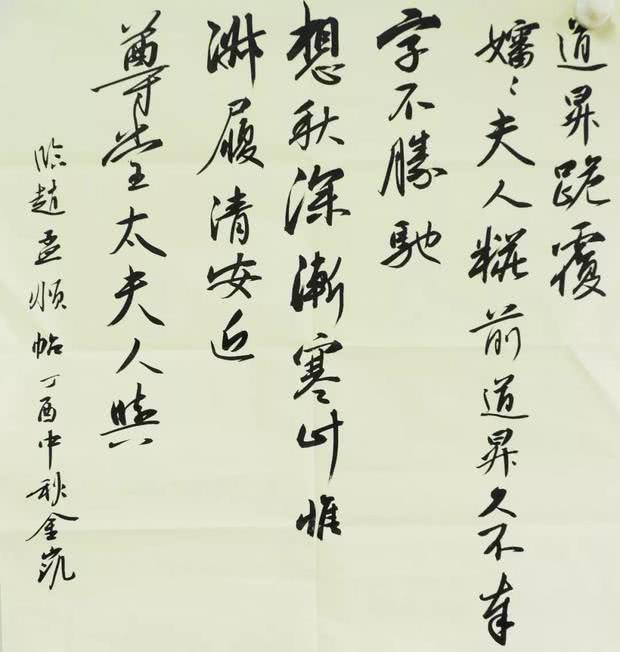 道昇跪覆
嬸〻夫人糚前道昇久不奉
字不勝馳
想秋深漸寒計惟
淑履清安近
尊堂太夫人與
臨趙孟頫帖丁酉中秋金凱